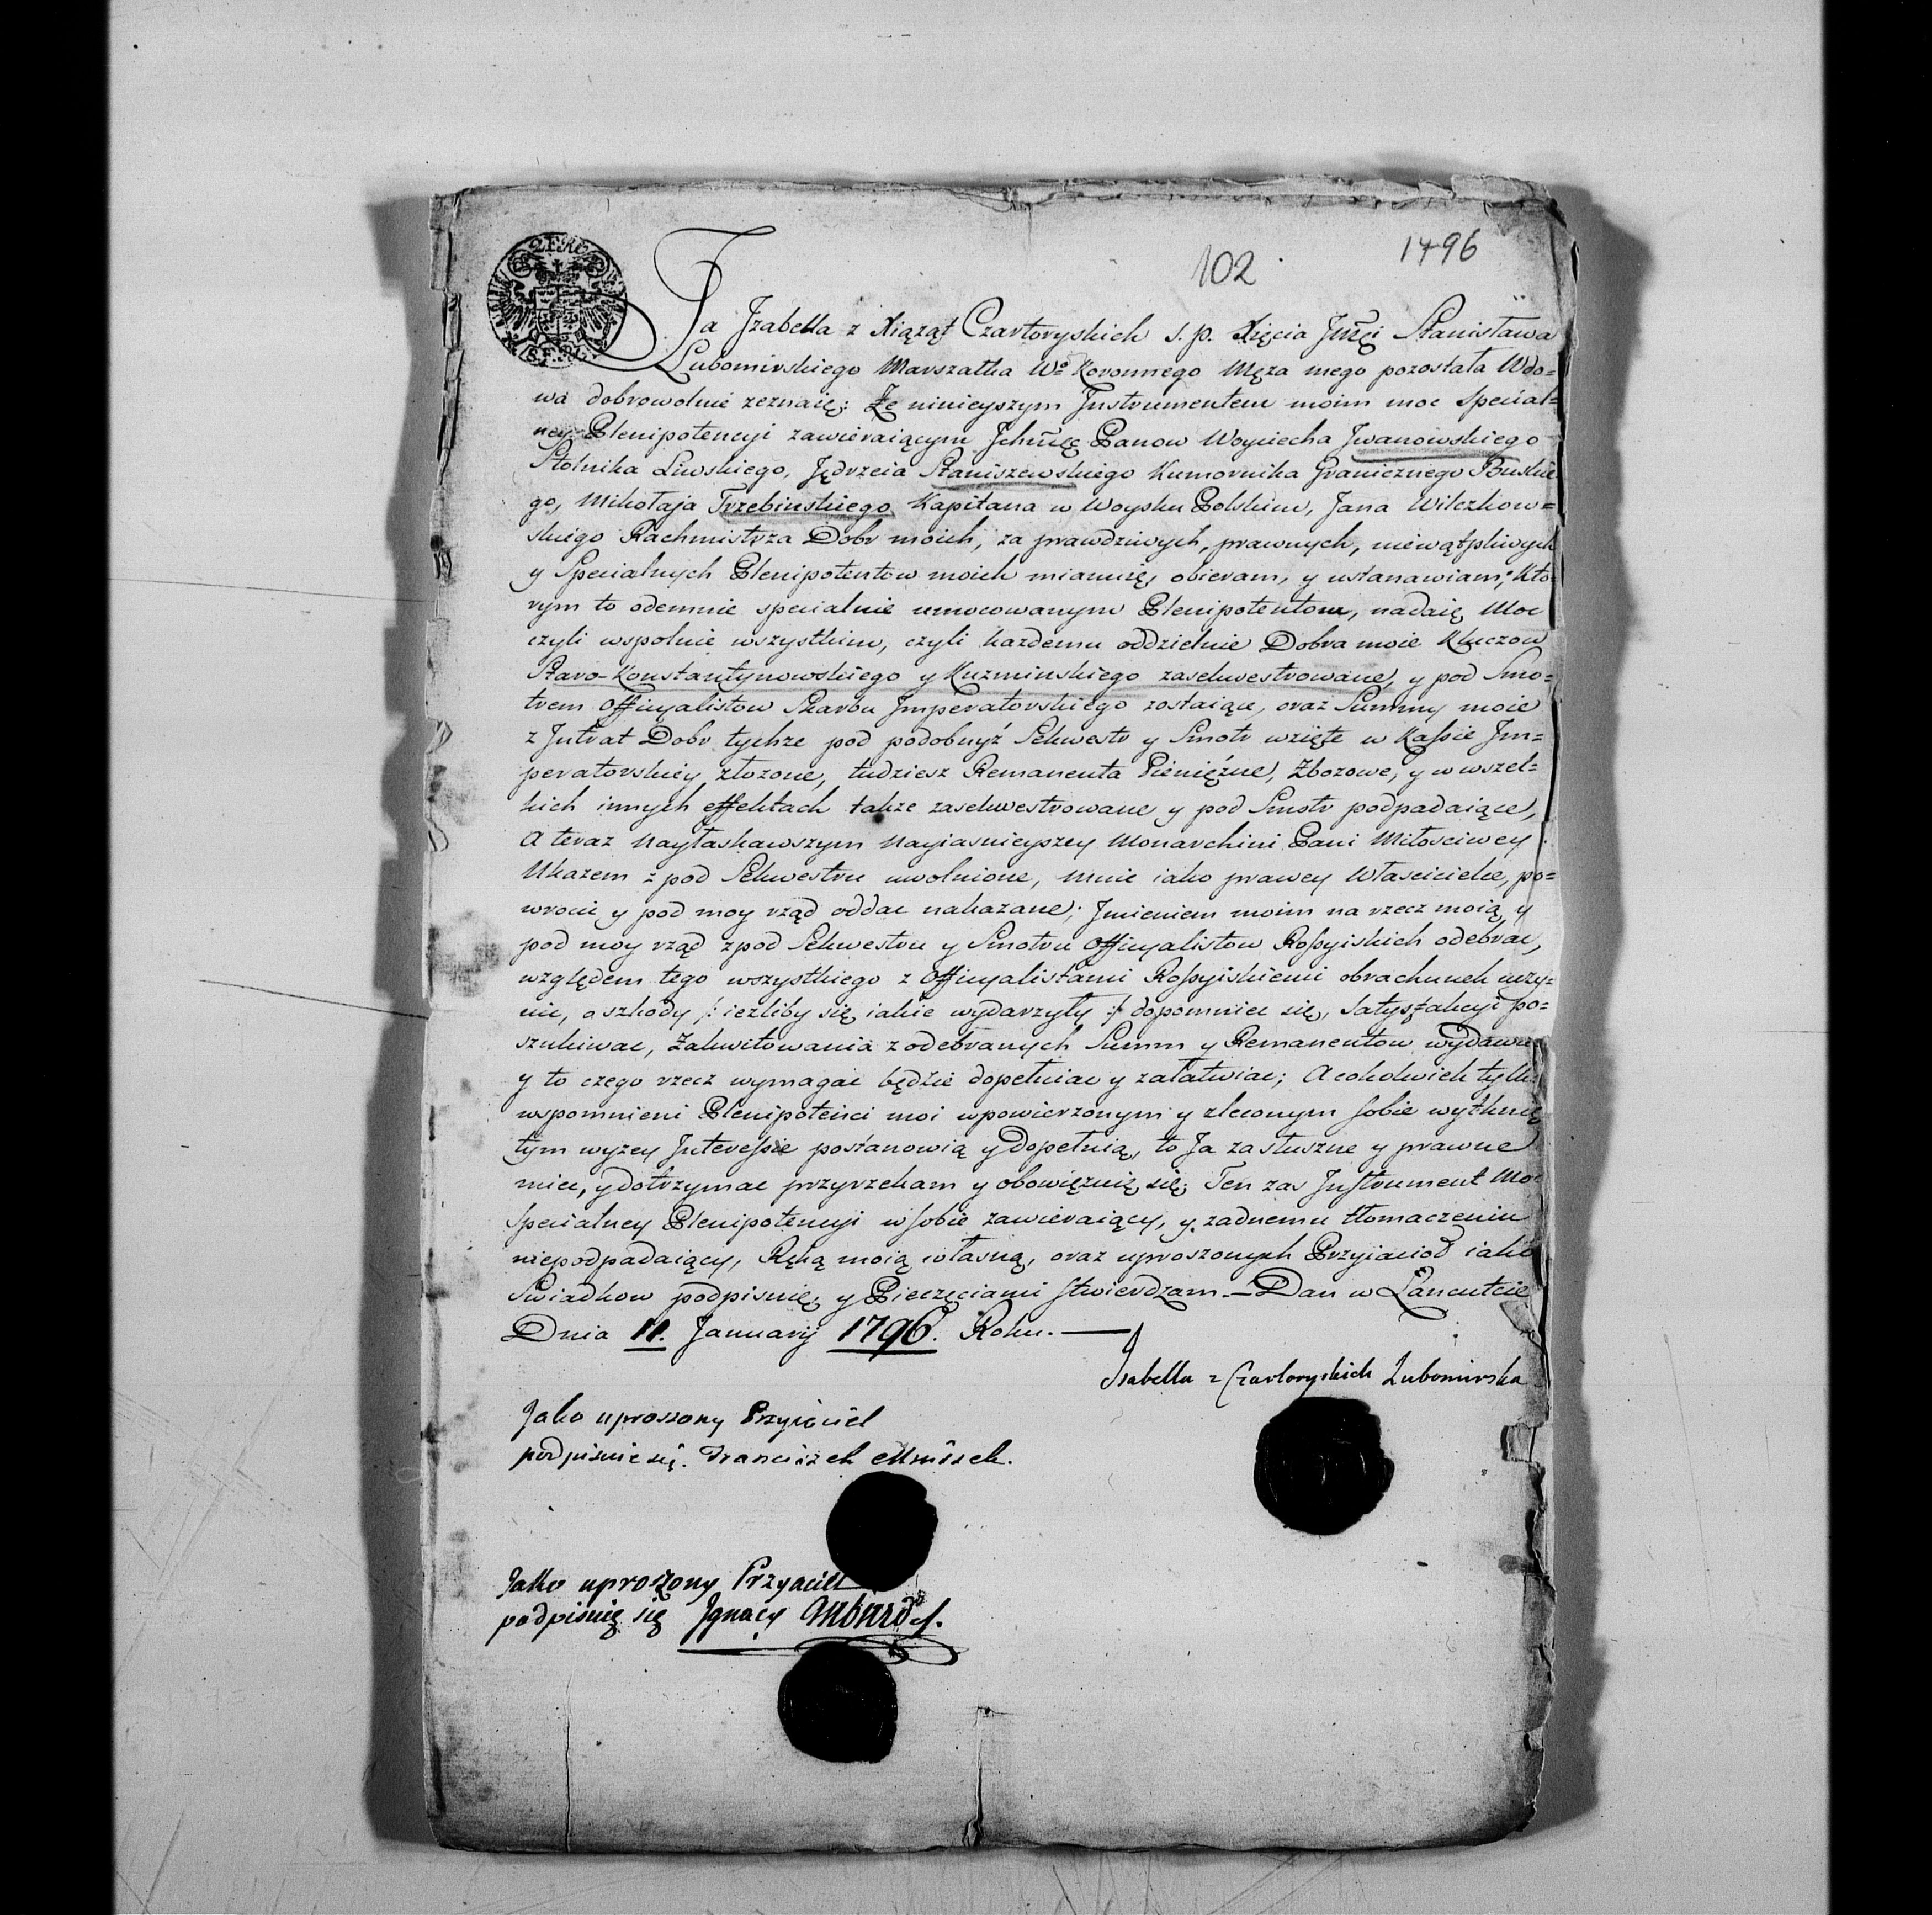 1796
102
Ja Jzabella z Xiąząt Czartoryskich s. p. Xięcia Jmści Stanisława
Lubomirskiego Marszałka Wo Koronnego Męza mego pozostała Wdo=
wa dobrowolnie zeznaię: Ze nineyszym Jnstrumentem moim moc Special=
ney Plenipotencyi zawieraiącym Jchmść Panow Woyciecha Jwanowskiego
Stolnika Liwskiego, Jędrzeia Staniszewskiego Kumornika Granicznego Buskie
go, Mikołaja Trzebinskiego Kapitana w Woysku Polskim, Jana Wilczkow=
skiego Rachmistrza Dobr moich, za prawdziwych, prawnych, niewątpliwych
y Specialnych Plenipotentow moich mianuię, obieram, y ustanawiam; Kto
rym to odemnie specialnie umocowanym Plenipotentom, nadaię Moc
czyli wspolnie wszystkim, czyli kazdemu oddzielnie Dobra moie Kluczow
Staro-Konstantynowskiego y Kuzminskiego zasekwestrowane, y pod Smo=
trem Officyalistow Skarbu Jmperatorskiego zostaiące, oraz Summy moie
z Jntrat Dobr tychze pod podobnyż Sekwestr y Smotr wzięte w Kassie Jm=
peratorskiey złozone, tudziesz Remanenta Pieniężne, Zbozowe, y w wszel=
kich innych effektach takze zasekwestrowane y pod Smotr podpadaiące,
A teraz Nayłaskawszym Nayiasnieyszey Monarchini Pani Miłosciwey
Ukazem z pod Sekwestru uwolnione, mnie iako prawey Własciciełce, po=
wrocic y pod moy rząd oddac nakazane; Jmieniem moim na rzecz moią y
pod moy rząd z pod Sekwestru y Smotru Officyalistow Rossyiskich odebrac,
względem tego wszystkiego z Officyalistami Rossyiskiemi obrachunek uczy=
nic, o szkody /: iezliby się iakie wydarzyły :/ dopomniec się, Satysfakcyi po=
szukiwac, Zakwitowania z odebranych Summ y Remanentow wydawac
y to czego rzecz wymagac będzie dopełniac y załatwiac; A cokolwiek tylko
wspomnieni Plenipotenci moi w powierzonym y zleconym sobie wytknię
tym wyzey Jnteressie postanowią y dopełnią, to Ja za słuszne y prawne
miec, y dotrzymac przyrzekam y obowięzuię się; Ten zas Jnstrument Moc
Specialney Plenipotencyi w sobie zawieraiący, y zadnemu tłomaczeniu
niepodpadaiący, Ręką moią własną, oraz uproszonych Przyiacioł iako
Swiadkow podpisuię, y Pieczęciami stwierdzam. — Dan w Łancutcie
Dnia 11. Januarij 1796. Roku. —
Jsabella z Czartoryskich Lubomirska
Jako uproszony Przyiaciel
podpisuie się. Franciszek
Jako uproszony Przyaciel
podpisuię się Jgnacy